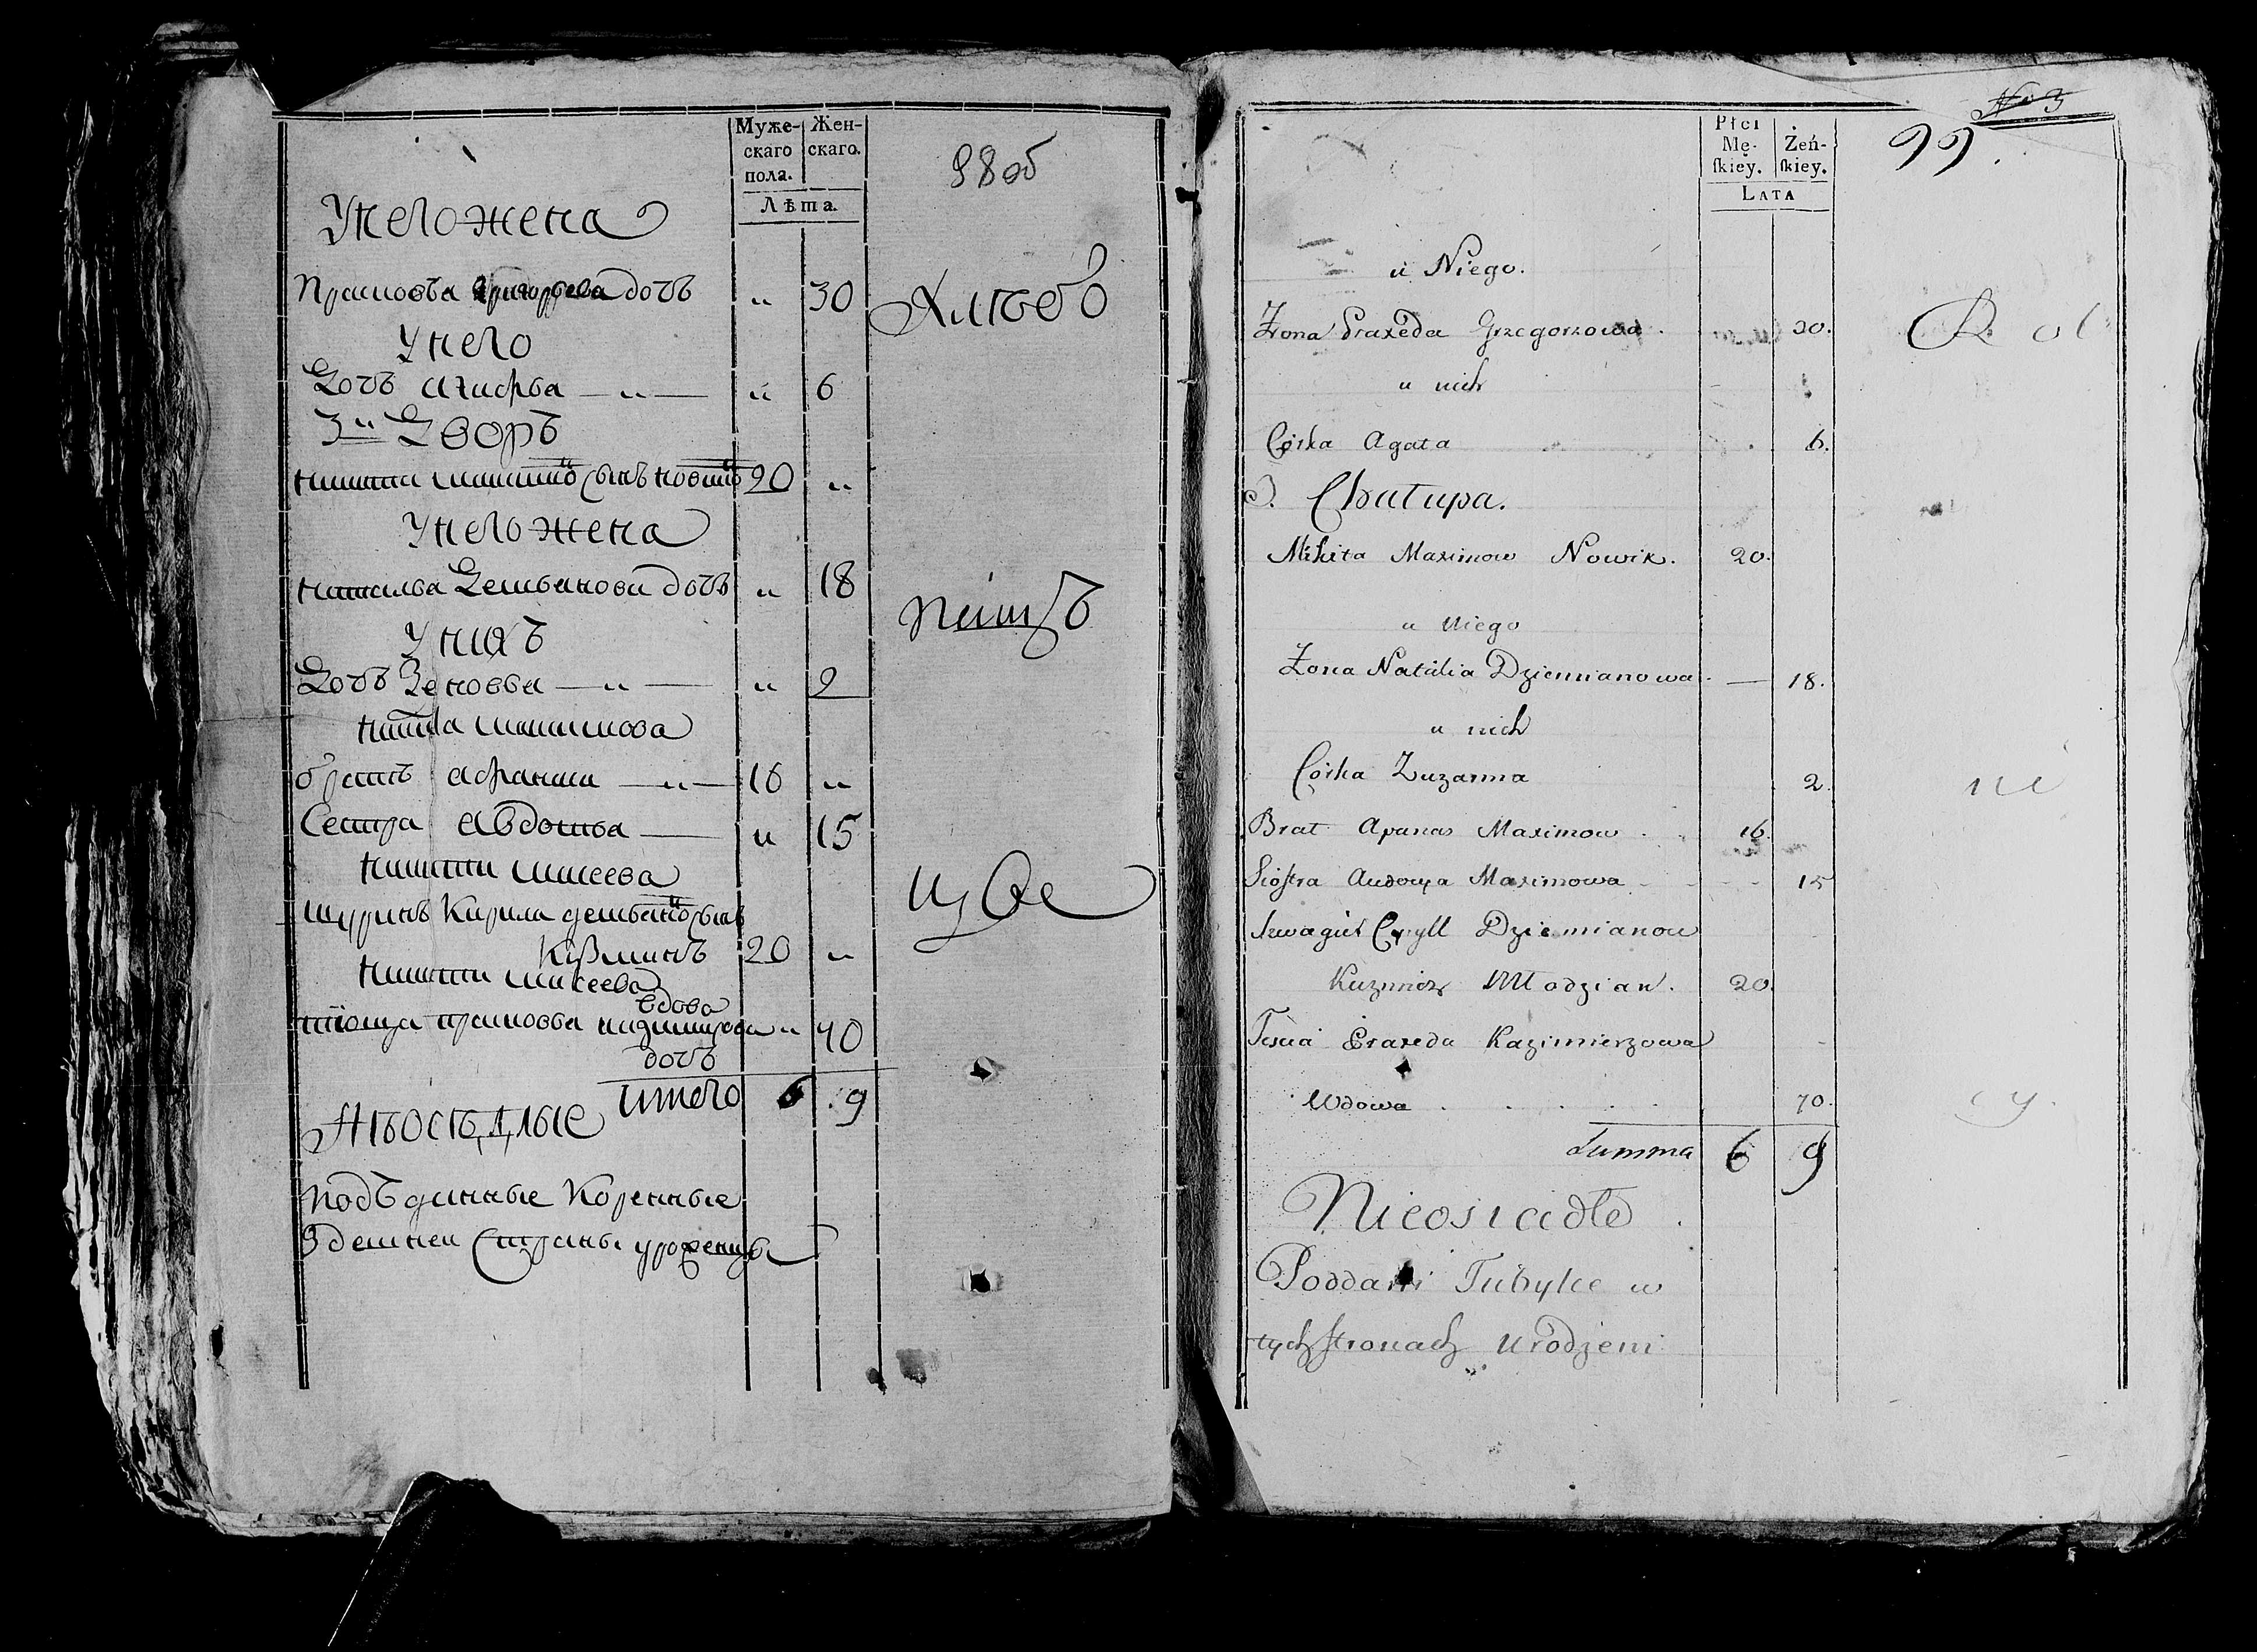 Муже-
скаго
пола.
Жен-
скаго.
Лѣта.
98об
У него жена
Прасковья Григорьева дочь " 30
Хлѣбо
У него
Дочь Агафья — " — " 6
3й Дворъ
Никита Максимо сынъ Новик 20 "
У него жена
Наталья Демьянова дочь " 18
Пашъ
У нихъ
Дочь Зеновья — " — " 2
Никита Максимова
братъ Афанаси — " — 16 "
Сестра Авдотья — " 15
Никиты
Шуринъ Кирила Демьяно сынъ
Кузминъ 20 "
Никиты
вдова
тюща Прасковья " 40
дочь
Итого 6 9
Подъданные Коренные
Здешней Страны уроженцы
Płci
Mę-
ſkiey.
Żeń-
ſkiey.
LATA
No 3
99.
u Niego.
Żona Praxeda Grzegorzowa. 30.
R ol
u nich
Córka Agata 6.
3. Chałupa.
Mikita Maximow Nowik. 20.
u Niego
Żona Natalia Dziemianowa. — 18.
u nich
Córka Zuzanna 2.
ni
Brat Apanas Maximow. 16.
Siostra Audocya Maximowa 15
Szwagier Cyryll Dziemianow
Kuzmicz Młodzian. 20.
Teścia Praxeda Kazimierzowa
Wdowa 40.
cy.
Summa 6 9
Nieosiadłe
Poddani Tubylce w
tych stronach urodzeni